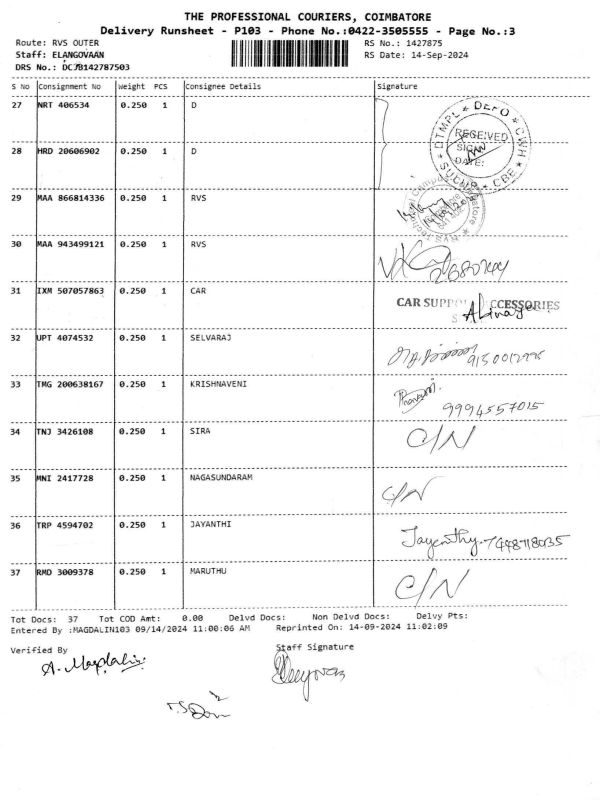 THE PROFESSIONAL COURIERS, COIMBATORE
Delivery Runsheet - P103 - Phone No.:0422-3505555 - Page No.:3
Route: RVS OUTER RS No.: 1427875
Staff: ELANGOVAAN RS Date: 14-Sep-2024
DRS No.: DCJB142787503
S No Consignment No Weight PCS Consignee Details Signature
27 NRT 406534 0.250 1 D
DTMPL * DEPO * CWH * CBE * SULUR
RECEIVED
SIGN
DATE:
28 HRD 20606902 0.250 1 D
29 MAA 866814336 0.250 1 RVS
30 MAA 943499121 0.250 1 RVS
31 IXM 507057863 0.250 1 CAR CAR SUPPO CCESSORIES
32 UPT 4074532 0.250 1 SELVARAJ
33 TMG 200638167 0.250 1 KRISHNAVENI
9994557015
34 TNJ 3426108 0.250 1 SIRA C/N
35 MNI 2417728 0.250 1 NAGASUNDARAM C/N
36 TRP 4594702 0.250 1 JAYANTHI Jayanthy.
37 RMD 3009378 0.250 1 MARUTHU C/N
Tot Docs: 37 Tot COD Amt: 0.00 Delvd Docs: Non Delvd Docs: Delvy Pts:
Entered By :MAGDALIN103 09/14/2024 11:00:06 AM Reprinted On: 14-09-2024 11:02:09
Verified By Staff Signature
A. Magdalin